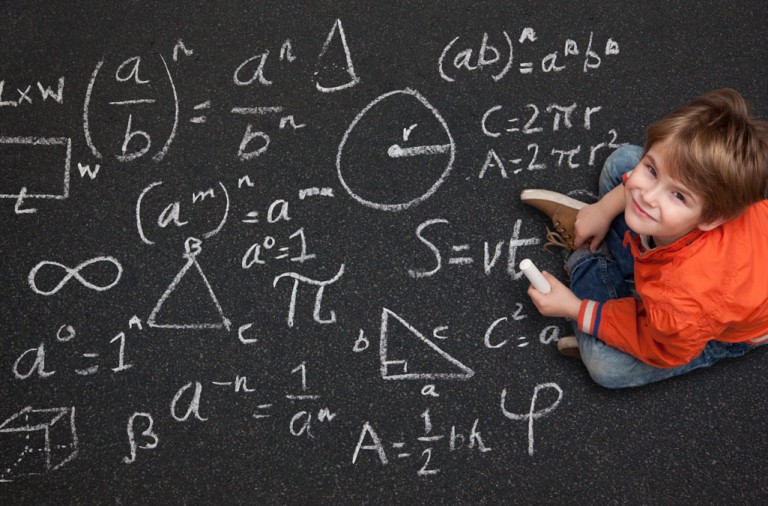 LxW
(a/b)ⁿ = aⁿ/bⁿ
(ab)ⁿ = aⁿbⁿ
r
C=2πr
A=2πr²
W
L
(aᵐ)ⁿ = aᵐⁿ
a⁰=1
S=vt
∞
B
A
C
π
b
c
a
C²=a
a⁰=1
β
a⁻ⁿ = 1/aⁿ
A=1/2bh
φ